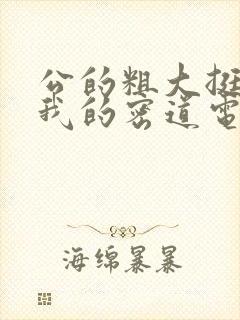 公的粗大挺
我的密道电
海绵暴暴